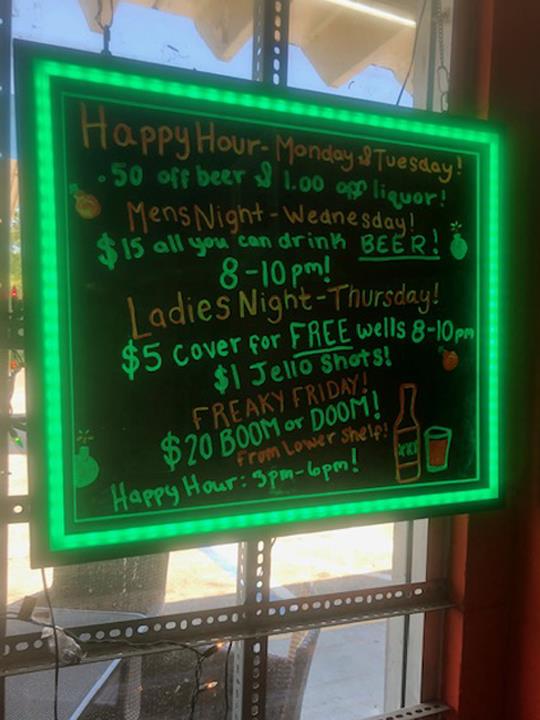 Happy Hour - Monday & Tuesday!
.50 off beer & 1.00 off liquor!
Mens Night - Wednesday!
$15 all you can drink BEER!
8-10pm!
Ladies Night - Thursday!
$5 cover for FREE wells 8-10pm
$1 Jello Shots!
FREAKY FRIDAY!
$20 BOOM or DOOM!
From Lower Shelf!
Happy Hour: 3pm-6pm!